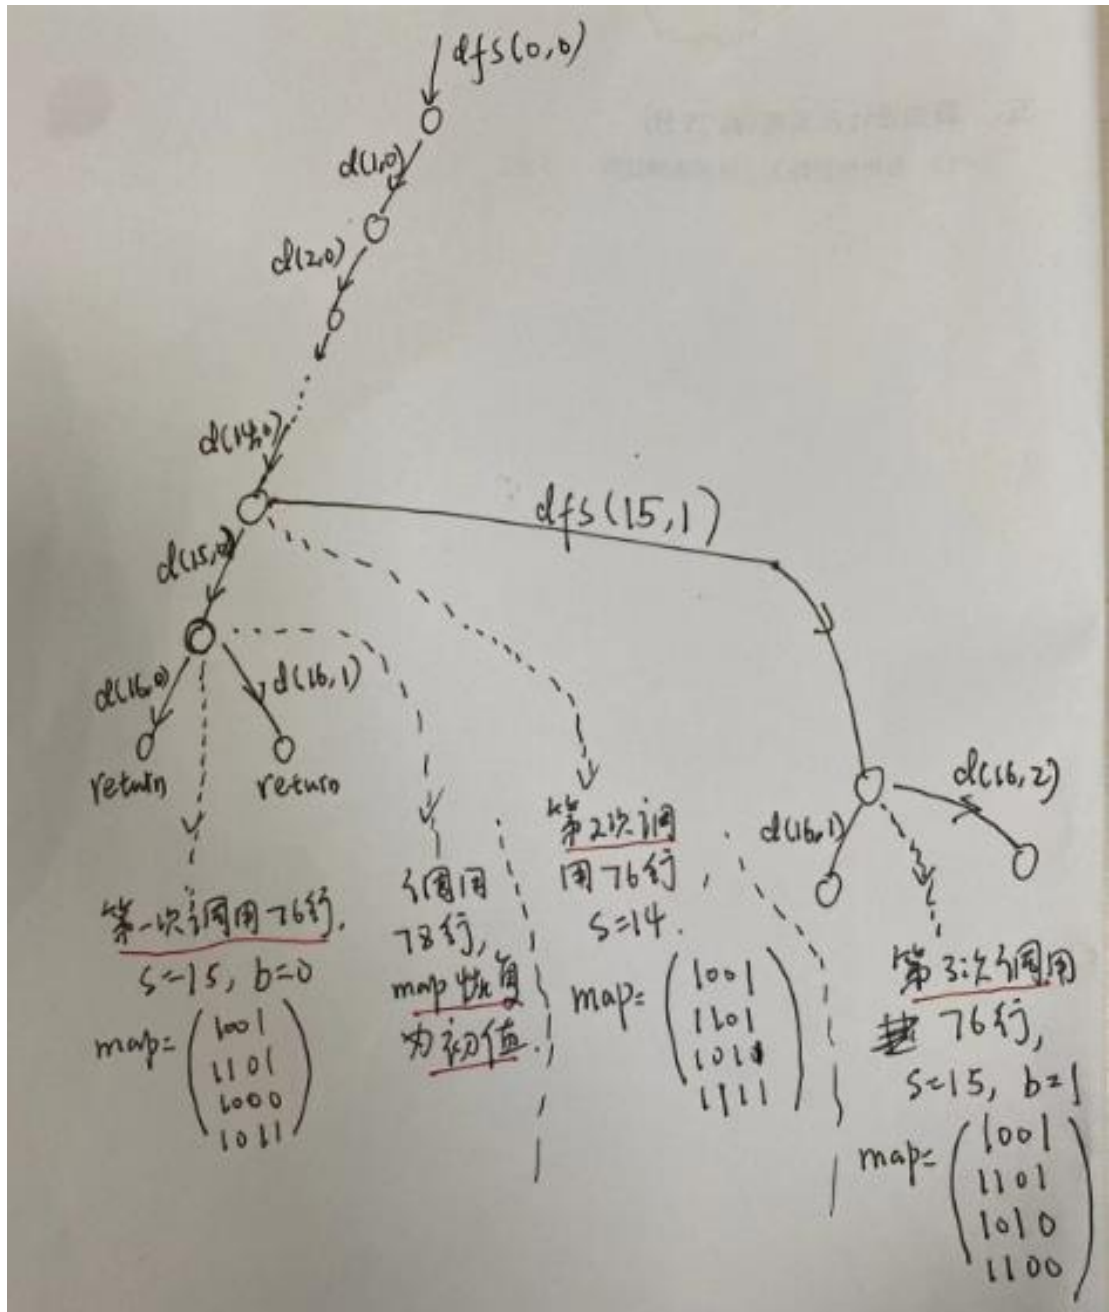 dfs(0,0)
d(1,0)
d(2,0)
d(14,0)
dfs(15,1)
d(15,0)
d(16,0)
d(16,1)
return
return
d(16,2)
d(16,1)
第一次调用76行.
s=15, b=0
map=
1001
1101
1000
1011
调用
78行,
map恢复
为初值.
第2次调
用76行,
s=14.
map=
1001
1101
1010
1111
第3次调用
76行,
s=15, b=1
map=
1001
1101
1010
1100